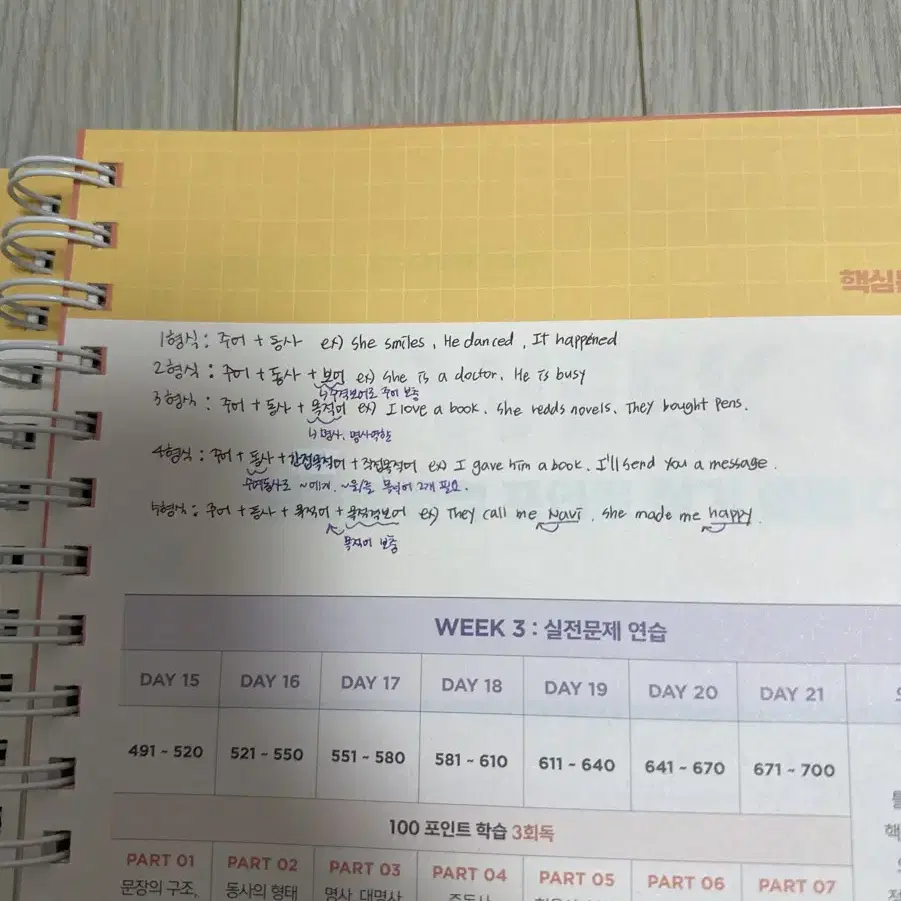 핵심
1형식 : 주어 + 동사 ex) She smiles, He danced, It happened
2형식 : 주어 + 동사 + 보어 ex) She is a doctor. He is busy
↳ 주격보어로 주어 보충
3형식 : 주어 + 동사 + 목적어 ex) I love a book. She reads novels. They bought pens.
↳ 명사, 명사역할
4형식 : 주어 + 동사 + 간접목적어 + 직접목적어 ex) I gave him a book. I'll send you a message.
수여동사로 ~에게, ~을/를 목적어 2개 필요.
5형식 : 주어 + 동사 + 목적어 + 목적격보어 ex) They call me Navi. She made me happy.
목적어 보충
WEEK 3 : 실전문제 연습
DAY 15 DAY 16 DAY 17 DAY 18 DAY 19 DAY 20 DAY 21
491 ~ 520 521 ~ 550 551 ~ 580 581 ~ 610 611 ~ 640 641 ~ 670 671 ~ 700
100 포인트 학습 3회독
PART 01 PART 02 PART 03 PART 04 PART 05 PART 06 PART 07
문장의 구조, 동사의 형태 명사, 대명사